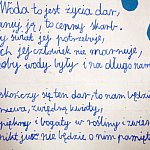 Woda to jest życia dar,
to cenny skarb.
świat jej potrzebuje,
jej człowiek nie marnuje,
wody były i na długo nam
się ten dar, to nam będzie
więdną kwiaty,
piękny i bogaty w rośliny i zwierz
nikt już nie będzie o nim pamięt